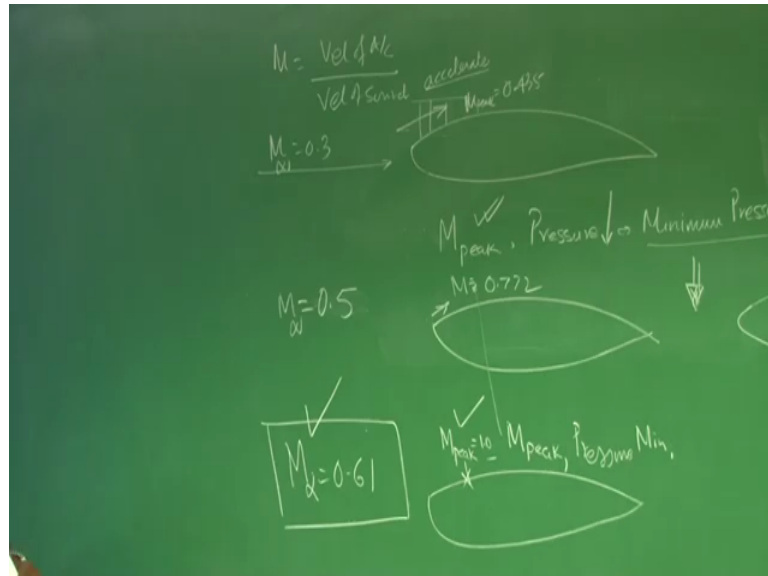 M = Vel of A/c
Vel of Sound
accelerate
M∞ = 0.3
Mpeak = 0.435
Mpeak, Pressure ↓ ⇒ Minimum Press
M∞ = 0.5
M = 0.772
M∞ = 0.61
Mpeak = 1.0
Mpeak, Pressure Min.